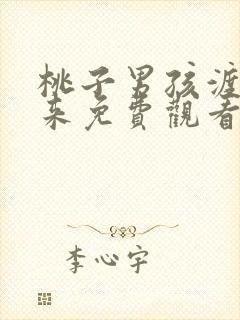 桃子男孩渡
来免費觀看
李心宇